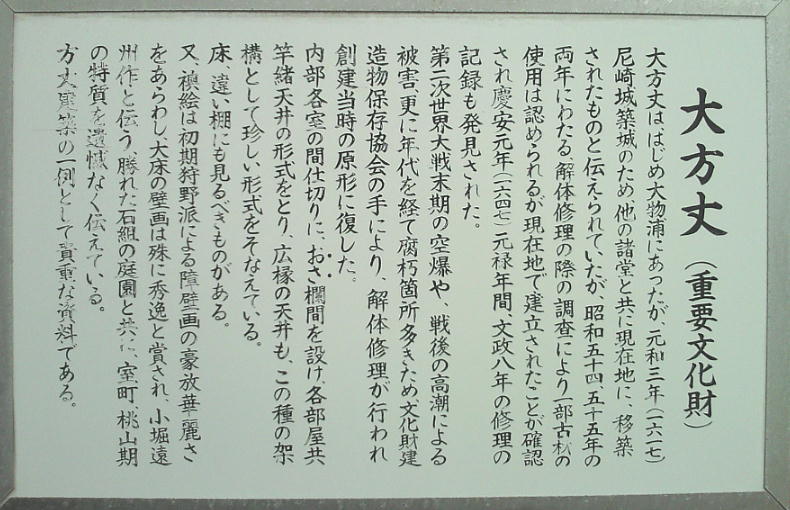 大方丈（重要文化財）
大方丈は、はじめ大物浦にあったが、元和三年（一六一七）
尼崎城築城のため、他の諸堂と共に現在地に、移築
されたものと伝えられていたが、昭和五十四、五十五年の
両年にわたる、解体修理の際の調査により一部古材の
使用は認められるが現在地で建立されたことが確認
され慶安元年（一六四七）元禄年間、文政八年の修理の
記録も発見された。
第二次世界大戦末期の空爆や、戦後の高潮による
被害、更に年代を経て腐朽箇所多きため文化財建
造物保存協会の手により、解体修理が行われ
創建当時の原形に復した。
内部各室の間仕切りに、おさ欄間を設け、各部屋共
竿緒天井の形式をとり、広椽の天井も、この種の架
構として珍しい形式をそなえている。
床、違い棚にも見るべきものがある。
又、襖絵は初期狩野派による障壁画の豪放華麗さ
をあらわし、大床の壁画は殊に秀逸と賞され、小堀遠
州作と伝う、勝れた石組の庭園と共に、室町、桃山期
の特質を遺憾なく伝えている。
方丈建築の一例として貴重な資料である。